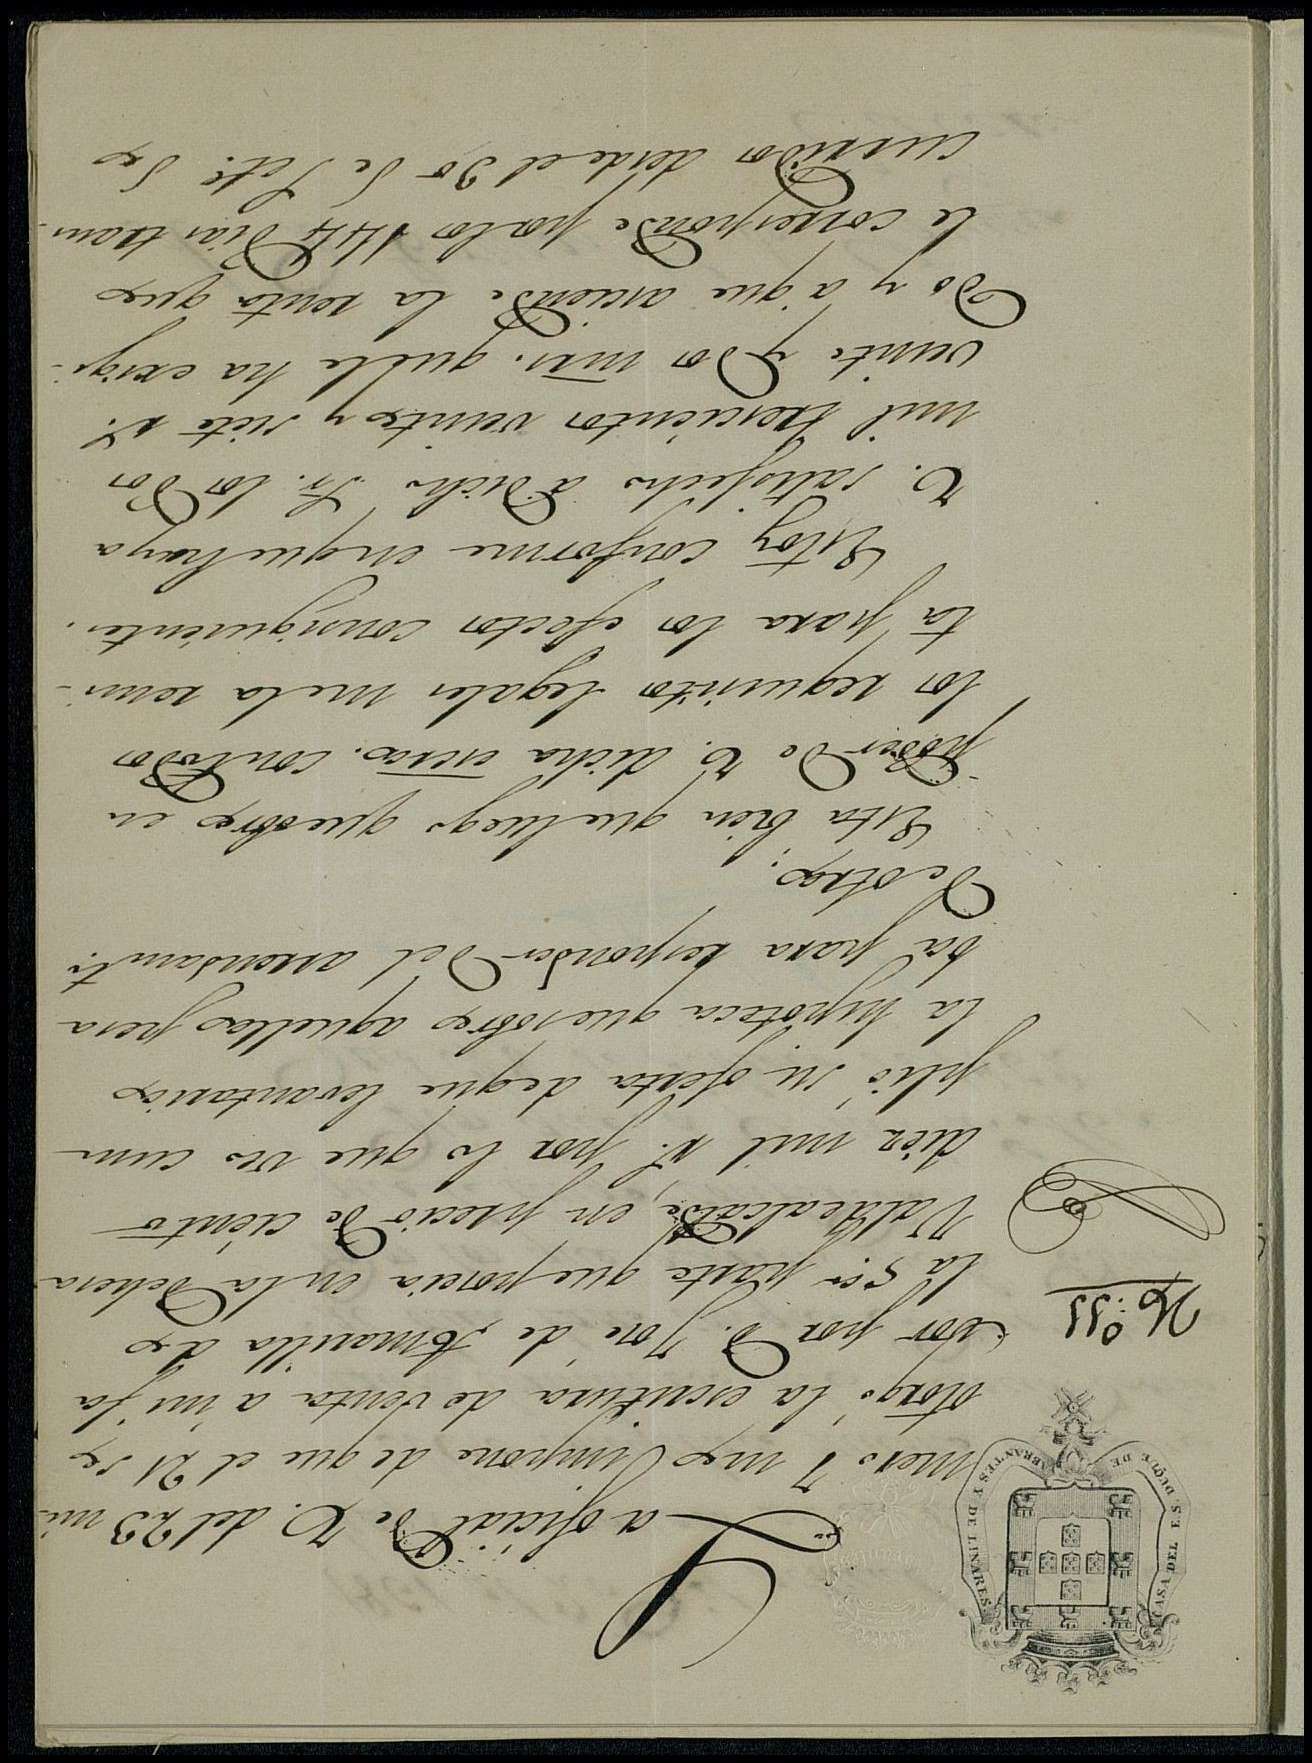 CASA DEL E. S. DUQUE DE ABRANTES Y DE LINARES
N.º 33
La oficial de V. del 23 nú-
mero 7 me impone de que el 21 se
otorgó la escritura de venta a mi fa
vor por D. José de Amarilla de
la 5.ª parte que poseia en la Dehesa
Valdealcalde, en precio de ciento
diez mil r.s por lo que veo cum
plió su oferta de que levantaria
la hipoteca que sobre aquella pesa
ba para responder del arrendam.to
de otra.
Esta bien que luego que obre en
poder de V. dicha escra. con todos
los requisitos legales me la remi-
ta para los efectos consiguientes.
Estoy conforme en que haya
V. satisfecho a dicho Sr. los dos
mil trescientos veinte y siete r.s
veinte y dos mrs. que le ha exigi-
do y a que asciende la renta que
le corresponde por los 144 dias trans-
curridos desde el 30 de Set.e de